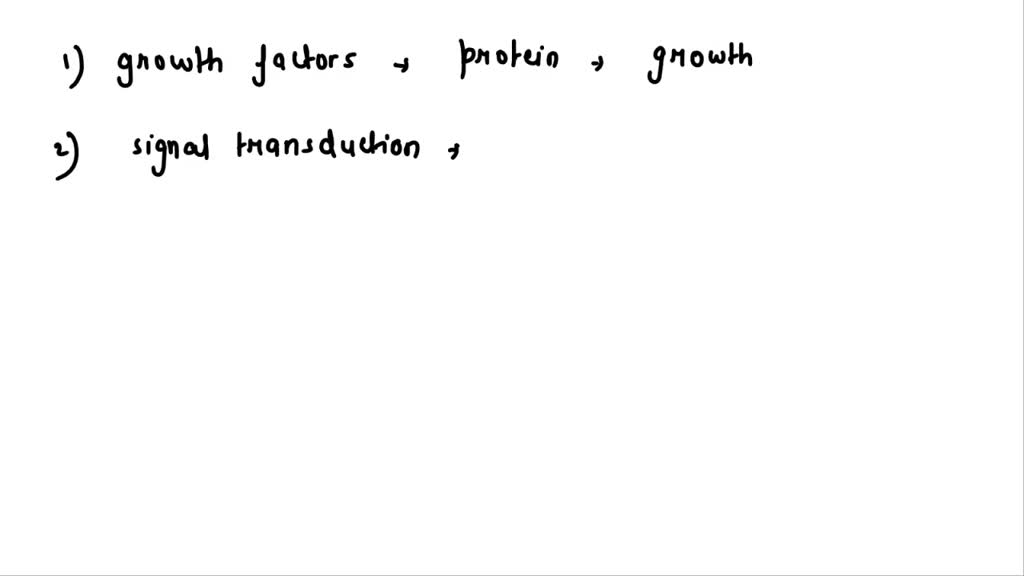 1) growth factors → protein → growth
2) signal transduction →